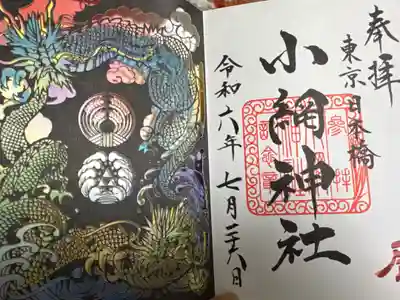 奉拝
東京日本橋
小網神社
令和六年七月二十八日